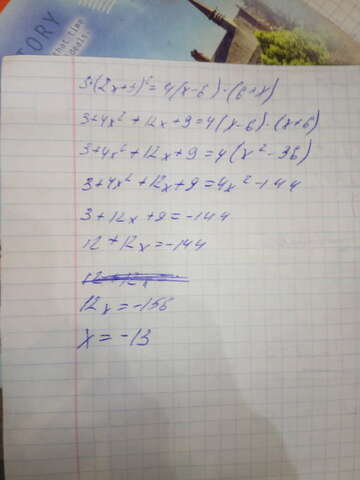 TORY
that time
deals
3+(2x+3)²=4(x-6)·(6+x)
3+4x²+12x+9=4(x-6)·(x+6)
3+4x²+12x+9=4(x²-36)
3+4x²+12x+9=4x²-144
3+12x+9=-144
12+12x=-144
12+12x=
12x=-156
x=-13